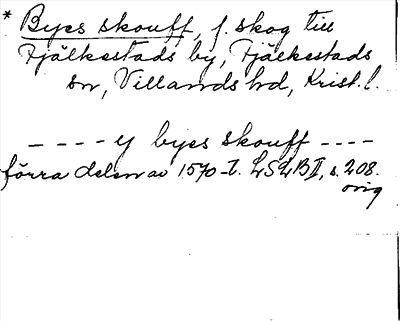 * Byes skouff, f. skog till
Fjälkestads by, Fjälkestads
sn, Villands hd, Krist. l.
- - - - y byes skouff - - - -
förra delen av 1570-t. LSLB II, s. 208.
orig